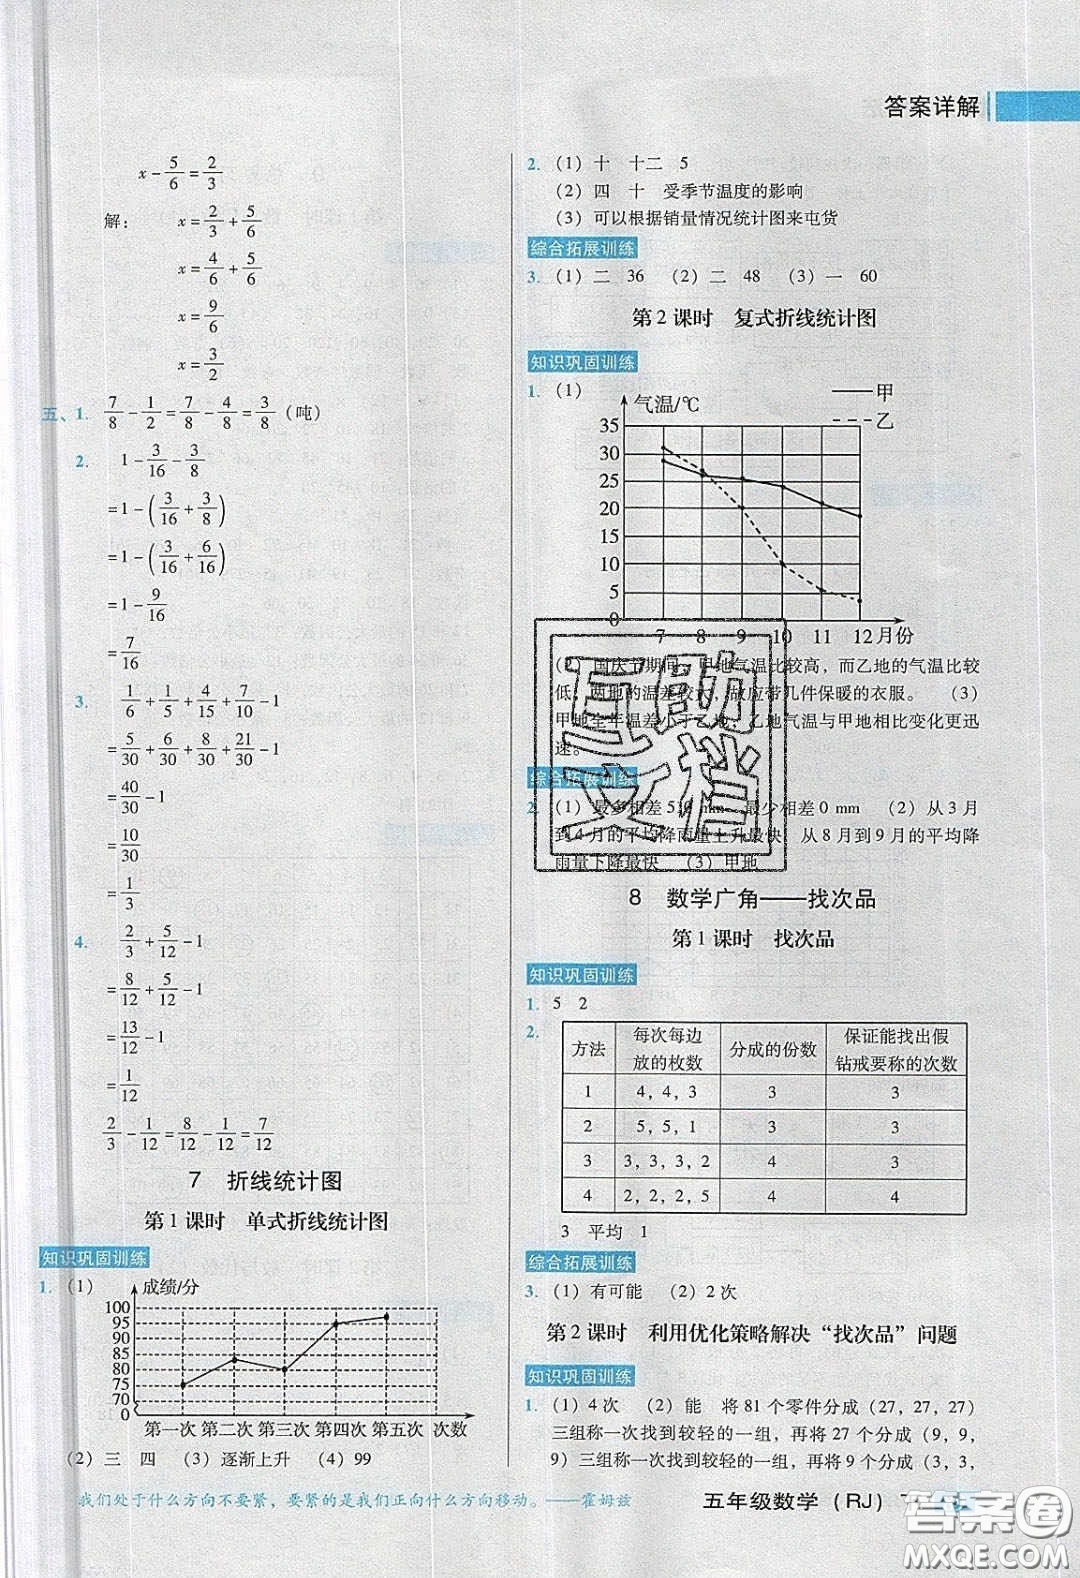 答案详解
x-5/6=2/3
解： x=2/3+5/6
x=4/6+5/6
x=9/6
x=3/2
五、1. 7/8-1/2=7/8-4/8=3/8（吨）
2. 1-3/16-3/8
=1-(3/16+3/8)
=1-(3/16+6/16)
=1-9/16
=7/16
3. 1/6+1/5+4/15+7/10-1
=5/30+6/30+8/30+21/30-1
=40/30-1
=10/30
=1/3
4. 2/3+5/12-1
=8/12+5/12-1
=13/12-1
=1/12
2/3-1/12=8/12-1/12=7/12
7 折线统计图
第1课时 单式折线统计图
知识巩固训练
1.（1） 成绩/分
100
95
90
85
80
75
70
0
第一次 第二次 第三次 第四次 第五次 次数
（2）三 四 （3）逐渐上升 （4）99
2.（1）十 十二 5
（2）四 十 受季节温度的影响
（3）可以根据销量情况统计图来屯货
综合拓展训练
3.（1）二 36 （2）二 48 （3）一 60
第2课时 复式折线统计图
知识巩固训练
1.（1） 气温/℃ 甲
乙
35
30
25
20
15
10
5
0
7 8 9 10 11 12 月份
（2）国庆节期间，甲地气温比较高，而乙地的气温比较
低，两地的温差较大，故应带几件保暖的衣服。 （3）
甲地全年温差小于乙地，乙地气温与甲地相比变化更迅
速。
综合拓展训练
2.（1）最多相差 mm 最少相差0 mm （2）从3月
到4月的平均降雨量上升最快 从8月到9月的平均降
雨量下降最快 （3）甲地
互助
文档
8 数学广角——找次品
第1课时 找次品
知识巩固训练
1. 5 2
2.
方法 每次每边放的枚数 分成的份数 保证能找出假钻戒要称的次数
1 4，4，3 3 3
2 5，5，1 3 3
3 3，3，3，2 4 3
4 2，2，2，5 4 4
3 平均 1
综合拓展训练
3.（1）有可能 （2）2次
第2课时 利用优化策略解决“找次品”问题
知识巩固训练
1.（1）4次 （2）能 将81个零件分成（27，27，27）
三组称一次找到较轻的一组，再将27个分成（9，9，
9）三组称一次找到较轻的一组，再将9个分成（3，3，
我们处于什么方向不要紧，要紧的是我们正向什么方向移动。——霍姆兹
五年级数学（RJ）
答案圈
MXQE.COM